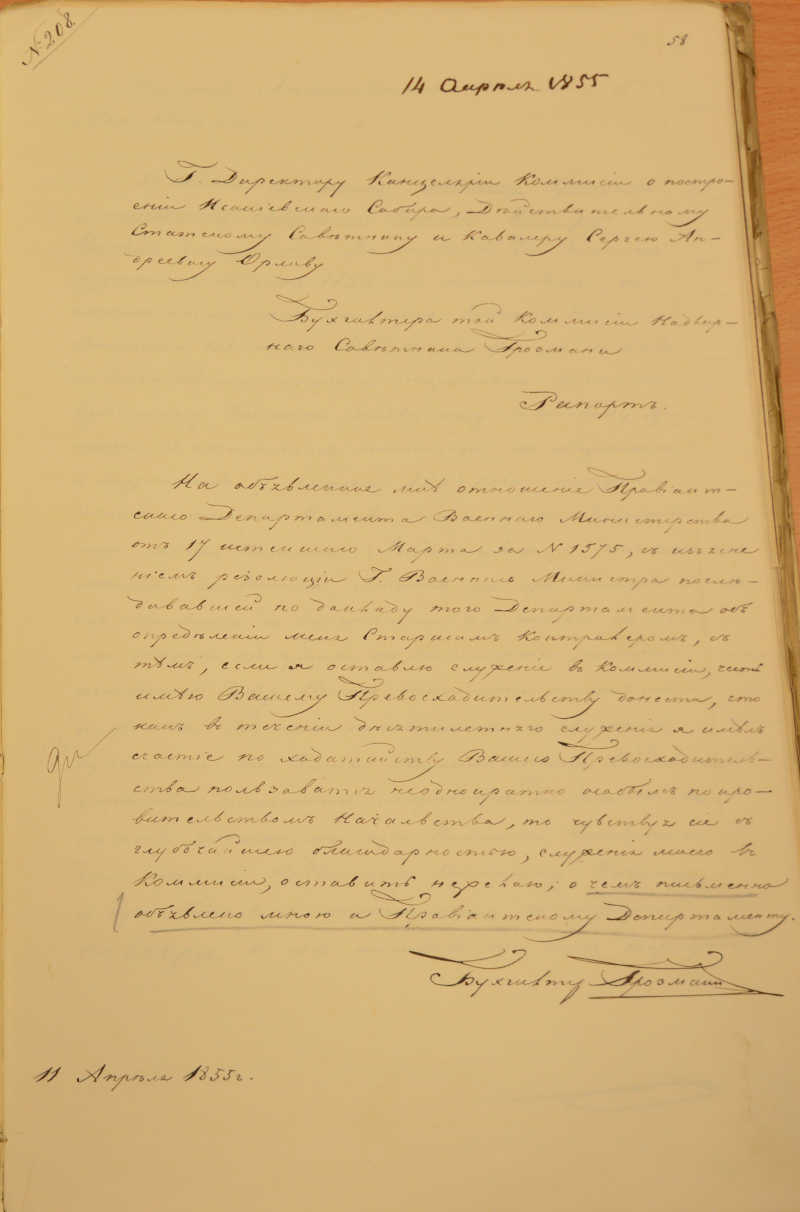 № 208.
58
14 Апрѣля 1855
Г. Директору Канцеляріи Коммисіи о постро-
еніи Исаакіевскаго Собора, Дѣйствительному
Статскому Совѣтнику и Кавалеру Сергею Ан-
дреевичу Орлову
Бухгалтера той Коммисіи Надвор-
наго Совѣтника Грозмани
Рапортъ.
На объявленное мнѣ отношеніе Провіант-
скаго Департамента Военнаго Министерства
отъ 17 истекшаго Марта за N 1575, съ изъясне
ніемъ резолюціи Г. Военнаго Министра послѣ-
довавшей по докладу того Департамента объ
опредѣленіи меня Старшимъ Контролеромъ, съ
тѣмъ, если я оставлю служеніе въ Коммисіи, честь
имѣю Вашему Превосходительству донести, что
какъ въ теченіи десятилетняго служенія я имѣлъ
счастіе по ходатайству Вашего Превосходитель-
ства пользоваться неоднократно особымъ покро-
вительствомъ Начальства, то чувствуя съ
глубочайшею благодарностью, служенія моего въ
Коммисіи, оставить не желаю; о чемъ письменно
объявлено мною и Провіантскому Департаменту.
Бухгалтеръ Грозмани
11 Апрѣля 1855 г.